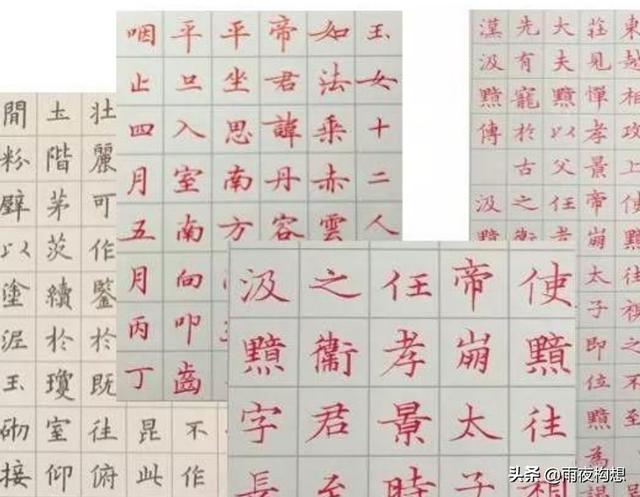 東越相攻上使黯往視之不至
莊見憚孝景帝崩太子即位黯為謁
大夫黯以父任孝
先有寵於古之衞
漢汲黯傳 汲黯
玉女十二人
如法乘赤雲
帝君諱丹容
平坐思南方
平旦入室南向叩齒
咽止四月五月丙丁
使黯往
帝崩太子
任孝景時
之衞君至
汲黯字長
不作
昆此
壮麗可作鑒於既往俯
土階茅茨續於瓊室仰
間粉壁以塗泥玉砌接
头条 @雨夜构想